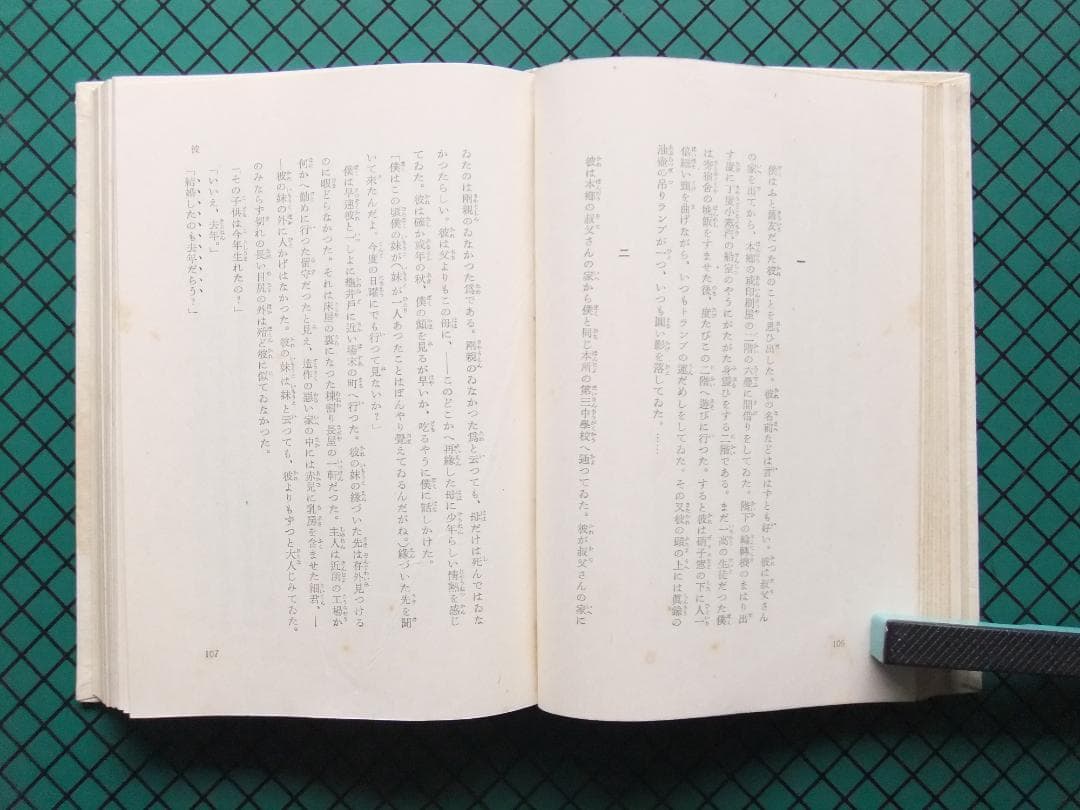 一
僕はふと舊友だつた彼のことを思ひ出した。彼の名前などは言はずとも好い。彼は叔父さん
の家を出てから、本郷の或印刷屋の二階の六疊に間借りをしてゐた。階下の輪轉機のまはり出
す度に丁度小蒸汽の船室のやうにがたがた身震ひをする二階である。まだ一高の生徒だつた僕
は寄宿舎の晩飯をすませた後、度たびこの二階へ遊びに行つた。すると彼は硝子窓の下に人一
倍細い頸を曲げながら、いつもトランプの運だめしをしてゐた。その又彼の頭の上には眞鍮の
油壺の吊りランプが一つ、いつも圓い影を落してゐた。……
二
彼は本郷の叔父さんの家から僕と同じ本所の第三中學校へ通つてゐた。彼が叔父さんの家に
106
ゐたのは兩親のゐなかつた爲である。兩親のゐなかつた爲と云つても、母だけは死んではゐな
かつたらしい。彼は父よりもこの母に、――このどこかへ再緣した母に少年らしい情熱を感じ
てゐた。彼は確か或年の秋、僕の顏を見るが早いか、吃るやうに僕に話しかけた。
「僕はこの頃僕の妹が(妹が一人あつたことはぼんやり覺えてゐるんだがね。)緣づいた先を聞
いて來たんだよ。今度の日曜にでも行つて見ないか?」
僕は早速彼と一しよに龜井戸に近い場末の町へ行つた。彼の妹の緣づいた先は存外見つける
のに暇どらなかつた。それは床屋の裏になつた棟割り長屋の一軒だつた。主人は近所の工場か
何かへ勤めに行つた留守だつたと見え、造作の惡い家の中には赤兒に乳房を含ませた細君、――
――彼の妹の外に人かげはなかつた。彼の妹は妹と云つても、彼よりもずつと大人じみてゐた。
のみならず切れの長い目尻の外は殆ど彼に似てゐなかつた。
「その子供は今年生れたの?」
「いいえ、去年。」
「結婚したのも去年だらう?」
彼
107